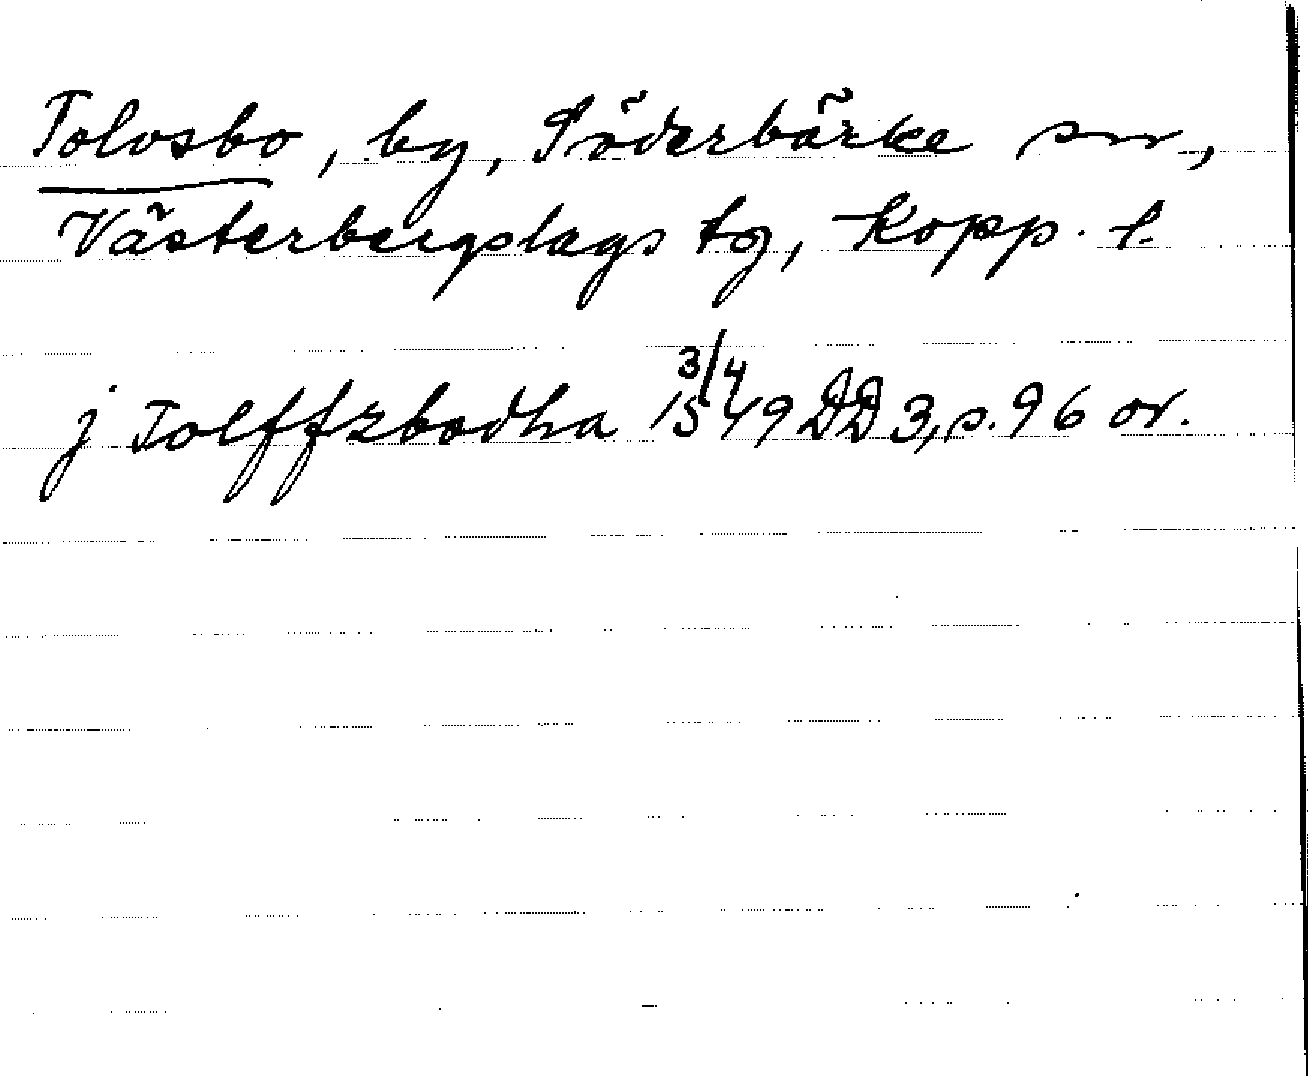 Tolvsbo, by, Söderbärke sn,
Västerbergslags tg, Kopp. l.
j Tolffzbodha 3/4 1549 DD 3, s. 96 or.